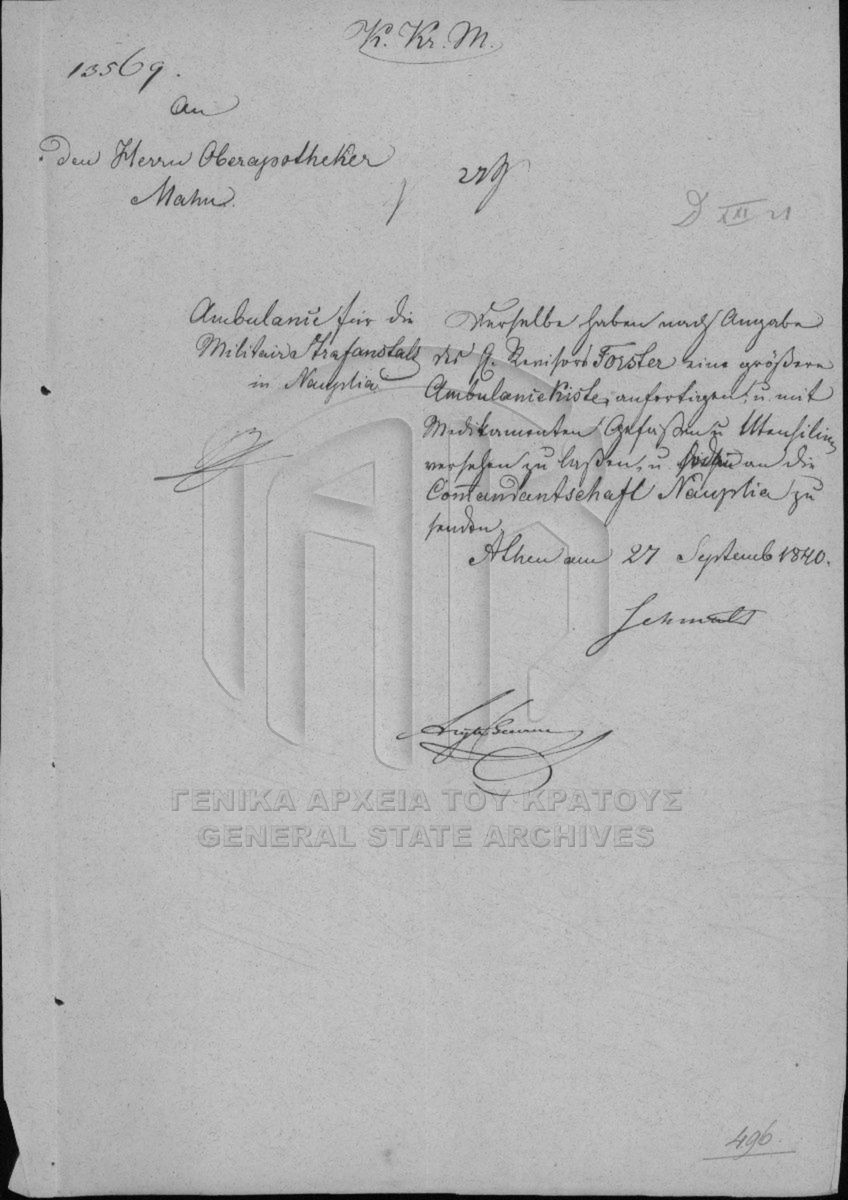 K. Kr. M.
13569.
An
den Herrn Oberapotheker
Mahn.
27/9
D XXI 21
Ambulance für die
Militair Strafanstalt
in Nauplia
Derselbe haben nach Angabe
des H. Revisors Forster eine größere
Ambulance Kiste anfertigen, u. mit
Medikamenten Gefäßen u Utensilien
versehen zu laßen, u. an die
Commandantschaft Nauplia zu
senden.
Athen am 27 Septemb 1840.
Schmaltz
ΓΕΝΙΚΑ ΑΡΧΕΙΑ ΤΟΥ ΚΡΑΤΟΥΣ
GENERAL STATE ARCHIVES
496